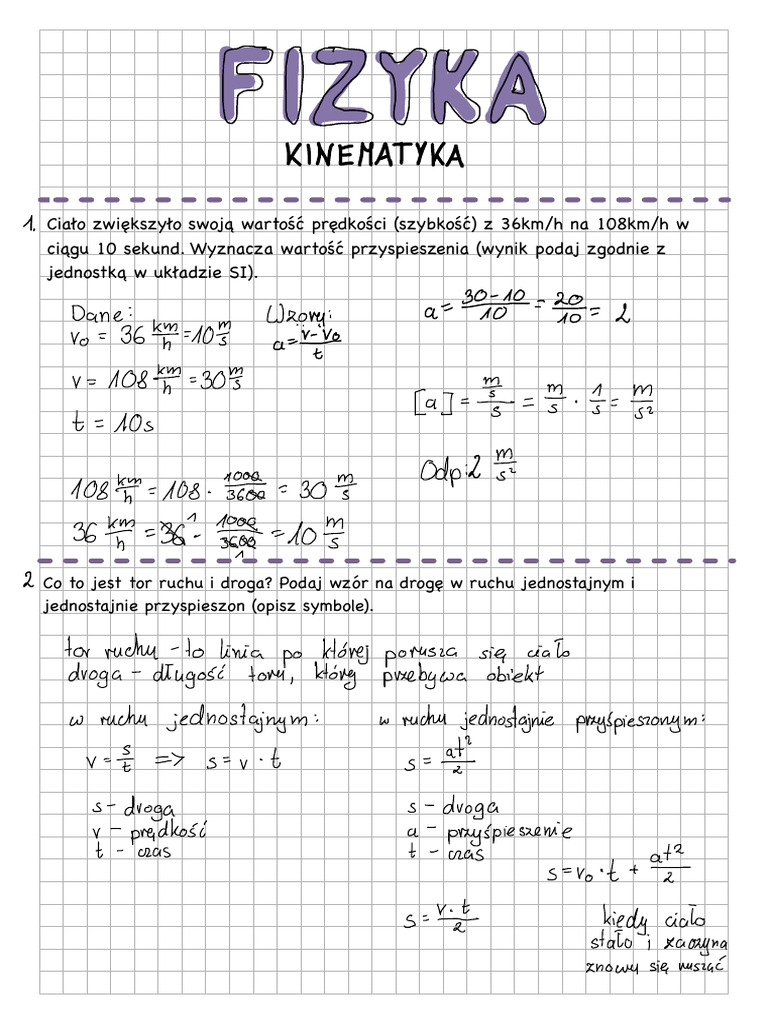 FIZYKA
KINEMATYKA
1. Ciało zwiększyło swoją wartość prędkości (szybkość) z 36km/h na 108km/h w
ciągu 10 sekund. Wyznacza wartość przyspieszenia (wynik podaj zgodnie z
jednostką w układzie SI).
Dane:
v₀ = 36 km/h = 10 m/s
v = 108 km/h = 30 m/s
t = 10s
Wzory:
a = v-v₀/t
a = 30-10/10 = 20/10 = 2
[a] = m/s/s = m/s · 1/s = m/s²
Odp: 2 m/s²
108 km/h = 108 · 1000/3600 = 30 m/s
36 km/h = 36 1 · 1000/3600 1 = 10 m/s
2 Co to jest tor ruchu i droga? Podaj wzór na drogę w ruchu jednostajnym i
jednostajnie przyspieszon (opisz symbole).
tor ruchu - to linia po której porusza się ciało
droga - długość toru, który przebywa obiekt
w ruchu jednostajnym:
v = s/t => s = v · t
s - droga
v - prędkość
t - czas
w ruchu jednostajnie przyśpieszonym:
s = at²/2
s - droga
a - przyśpieszenie
t - czas
s = v₀ · t + at²/2
s = v · t/2
kiedy ciało
stało i zaczyna
znowy się ruszać